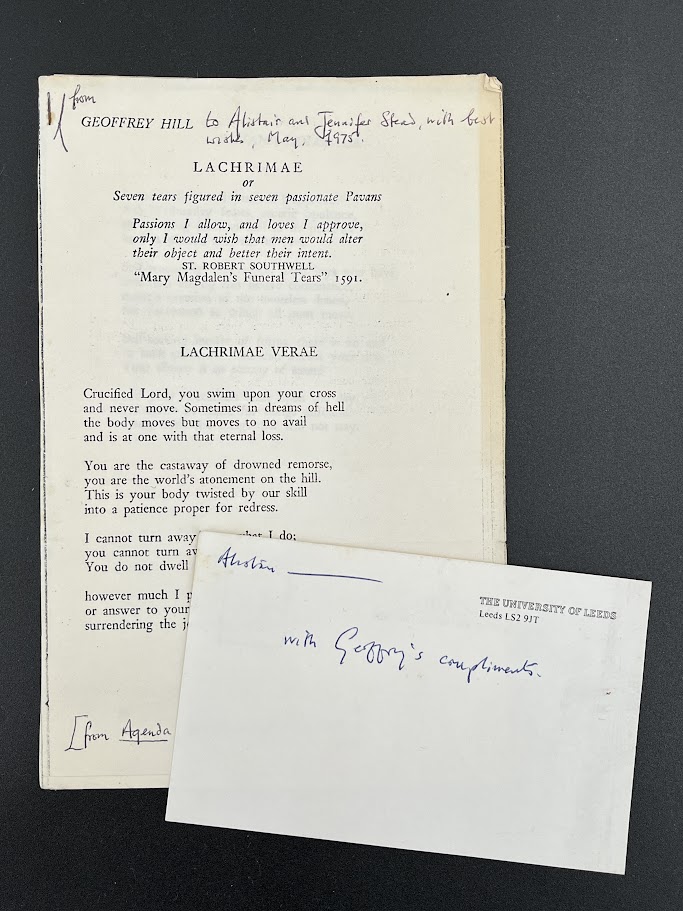 from
GEOFFREY HILL to Alistair and Jennifer Stead, with best
wishes, May, 1975.
LACHRIMAE
or
Seven tears figured in seven passionate Pavans
Passions I allow, and loves I approve,
only I would wish that men would alter
their object and better their intent.
ST. ROBERT SOUTHWELL
"Mary Magdalen's Funeral Tears" 1591.
LACHRIMAE VERAE
Crucified Lord, you swim upon your cross
and never move. Sometimes in dreams of hell
the body moves but moves to no avail
and is at one with that eternal loss.
You are the castaway of drowned remorse,
you are the world's atonement on the hill.
This is your body twisted by our skill
into a patience proper for redress.
I cannot turn away what I do;
you cannot turn
You do not dwell
however much I
or answer to your
surrendering the
[from Agenda
Alistair
THE UNIVERSITY OF LEEDS
Leeds LS2 9JT
with Geoffrey's compliments.